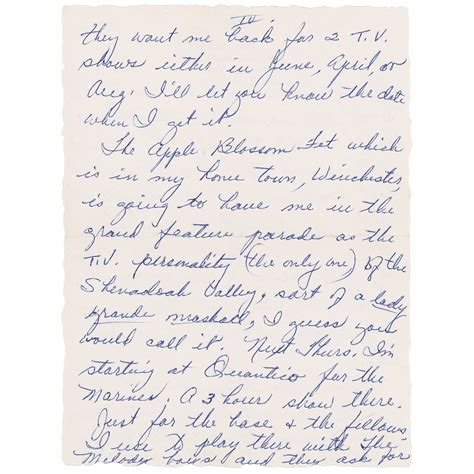 IV.
they want me back for 2 T.V.
shows either in June, April, or
Aug. I'll let you know the date
when I get it.
The Apple Blossom Fet which
is in my home town, Winchester,
is going to have me in the
grand feature parade as the
T.V. personality (the only one) of the
Shenadoah Valley, sort of a lady
grande mashall, I guess you
would call it. Next Thurs. I'm
starting at Quantico for the
Marines. A 3 hour show there.
Just for the base & the fellows
I use to play there with The
Melody boys and they ask for